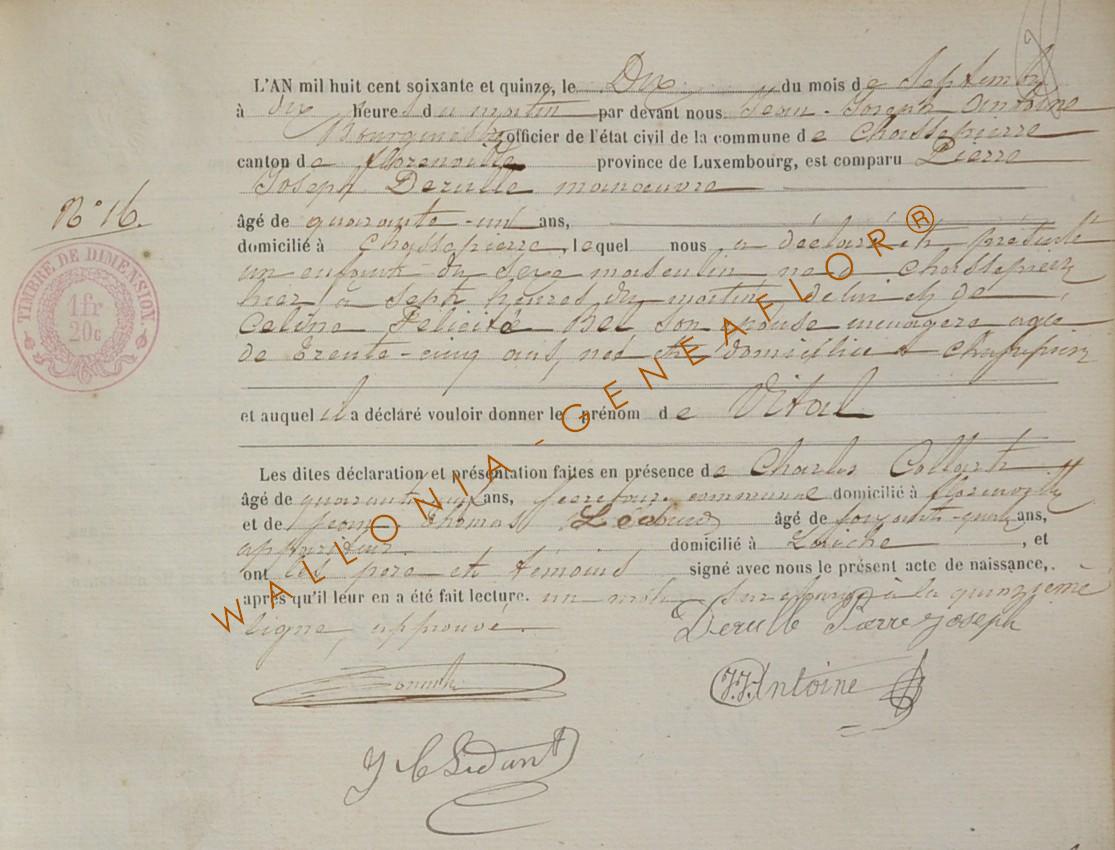 L'AN mil huit cent soixante et quinze, le Dix du mois de Septembre
à dix heures du matin par devant nous Jean-Joseph Antoine
Bourgmestre officier de l'état civil de la commune de Chassepierre
canton de florenville province de Luxembourg, est comparu Pierre
Joseph Derulle manœuvre
N° 16.
âgé de quarante-un ans,
domicilié à Chassepierre, lequel nous a déclaré et présenté
un enfant du sexe masculin né à Chassepierre
hier à sept heures du matin, de lui et de
Celine Felicité Bel son épouse menagere agée
de trente-cinq ans, née et domiciliée à Chassepierre
TIMBRE DE DIMENSION
1fr
20c
et auquel il a déclaré vouloir donner le prénom de Vital
Les dites déclaration et présentation faites en présence de Charles Collart
âgé de quarante ans, secretaire communal domicilié à florenville
et de Jean Thomas âgé de ans,
appariteur domicilié à Laiche, et
ont les père et témoins signé avec nous le présent acte de naissance,
après qu'il leur en a été fait lecture. un mot surchargé à la quinzième
ligne, approuvé.
Derulle Pierre joseph
J.J. Antoine
WALLONIA-GENEAFLOR®